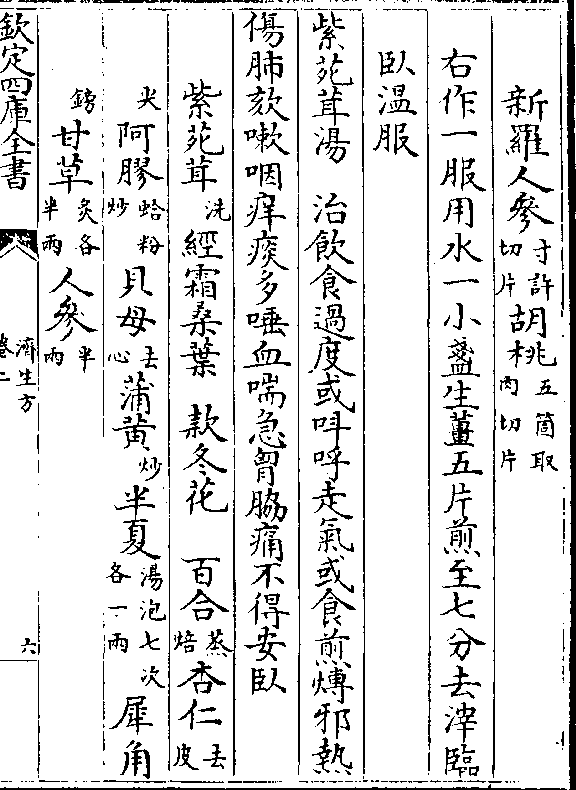 新羅人參寸許切片胡桃五箇取肉切片
右作一服用水一小盞生薑五片煎至七分去滓臨
臥温服
紫菀茸湯　治飲食過度或呌呼走氣或食煎煿邪熱
傷肺欬嗽咽痒痰多唾血喘急胷脇痛不得安臥
紫菀茸洗經霜桑葉　款冬花　百合蒸焙杏仁去皮
尖阿膠蛤粉炒貝母去心蒲黄炒半夏湯泡七次各一兩犀角
鎊甘草炙各半兩人參半兩
欽定四庫全書
濟生方
卷二
六